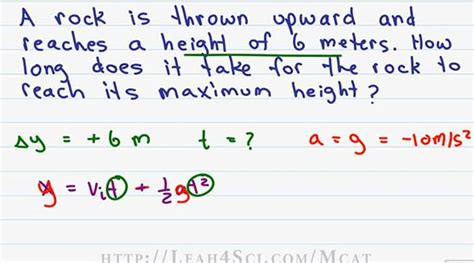 A rock is thrown upward and
reaches a height of 6 meters. How
long does it take for the rock to
reach its maximum height?
Δy = +6 m t = ? a = g = -10m/s²
y = vᵢt + ½gt²
http://Leah4Sci.com/Mcat